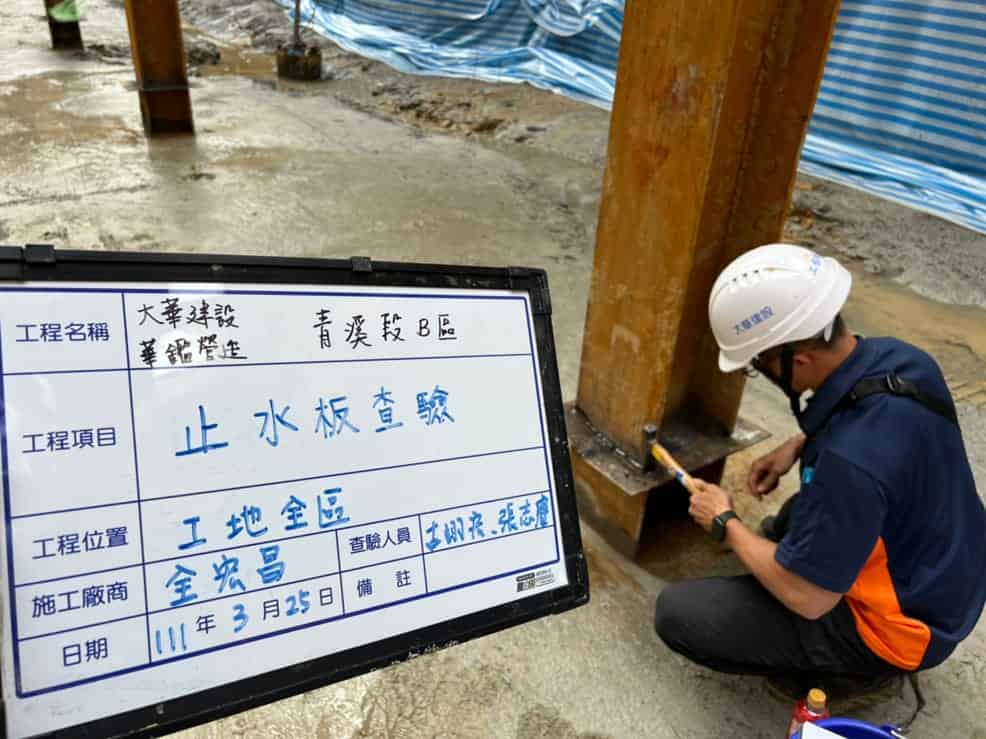 工程名稱 大華建設 青溪段B區
華鑑營造
工程項目 止水板查驗
工程位置 工地全區
查驗人員 張志慶
施工廠商 全宏昌
備註
日期 111年3月25日
大華建設